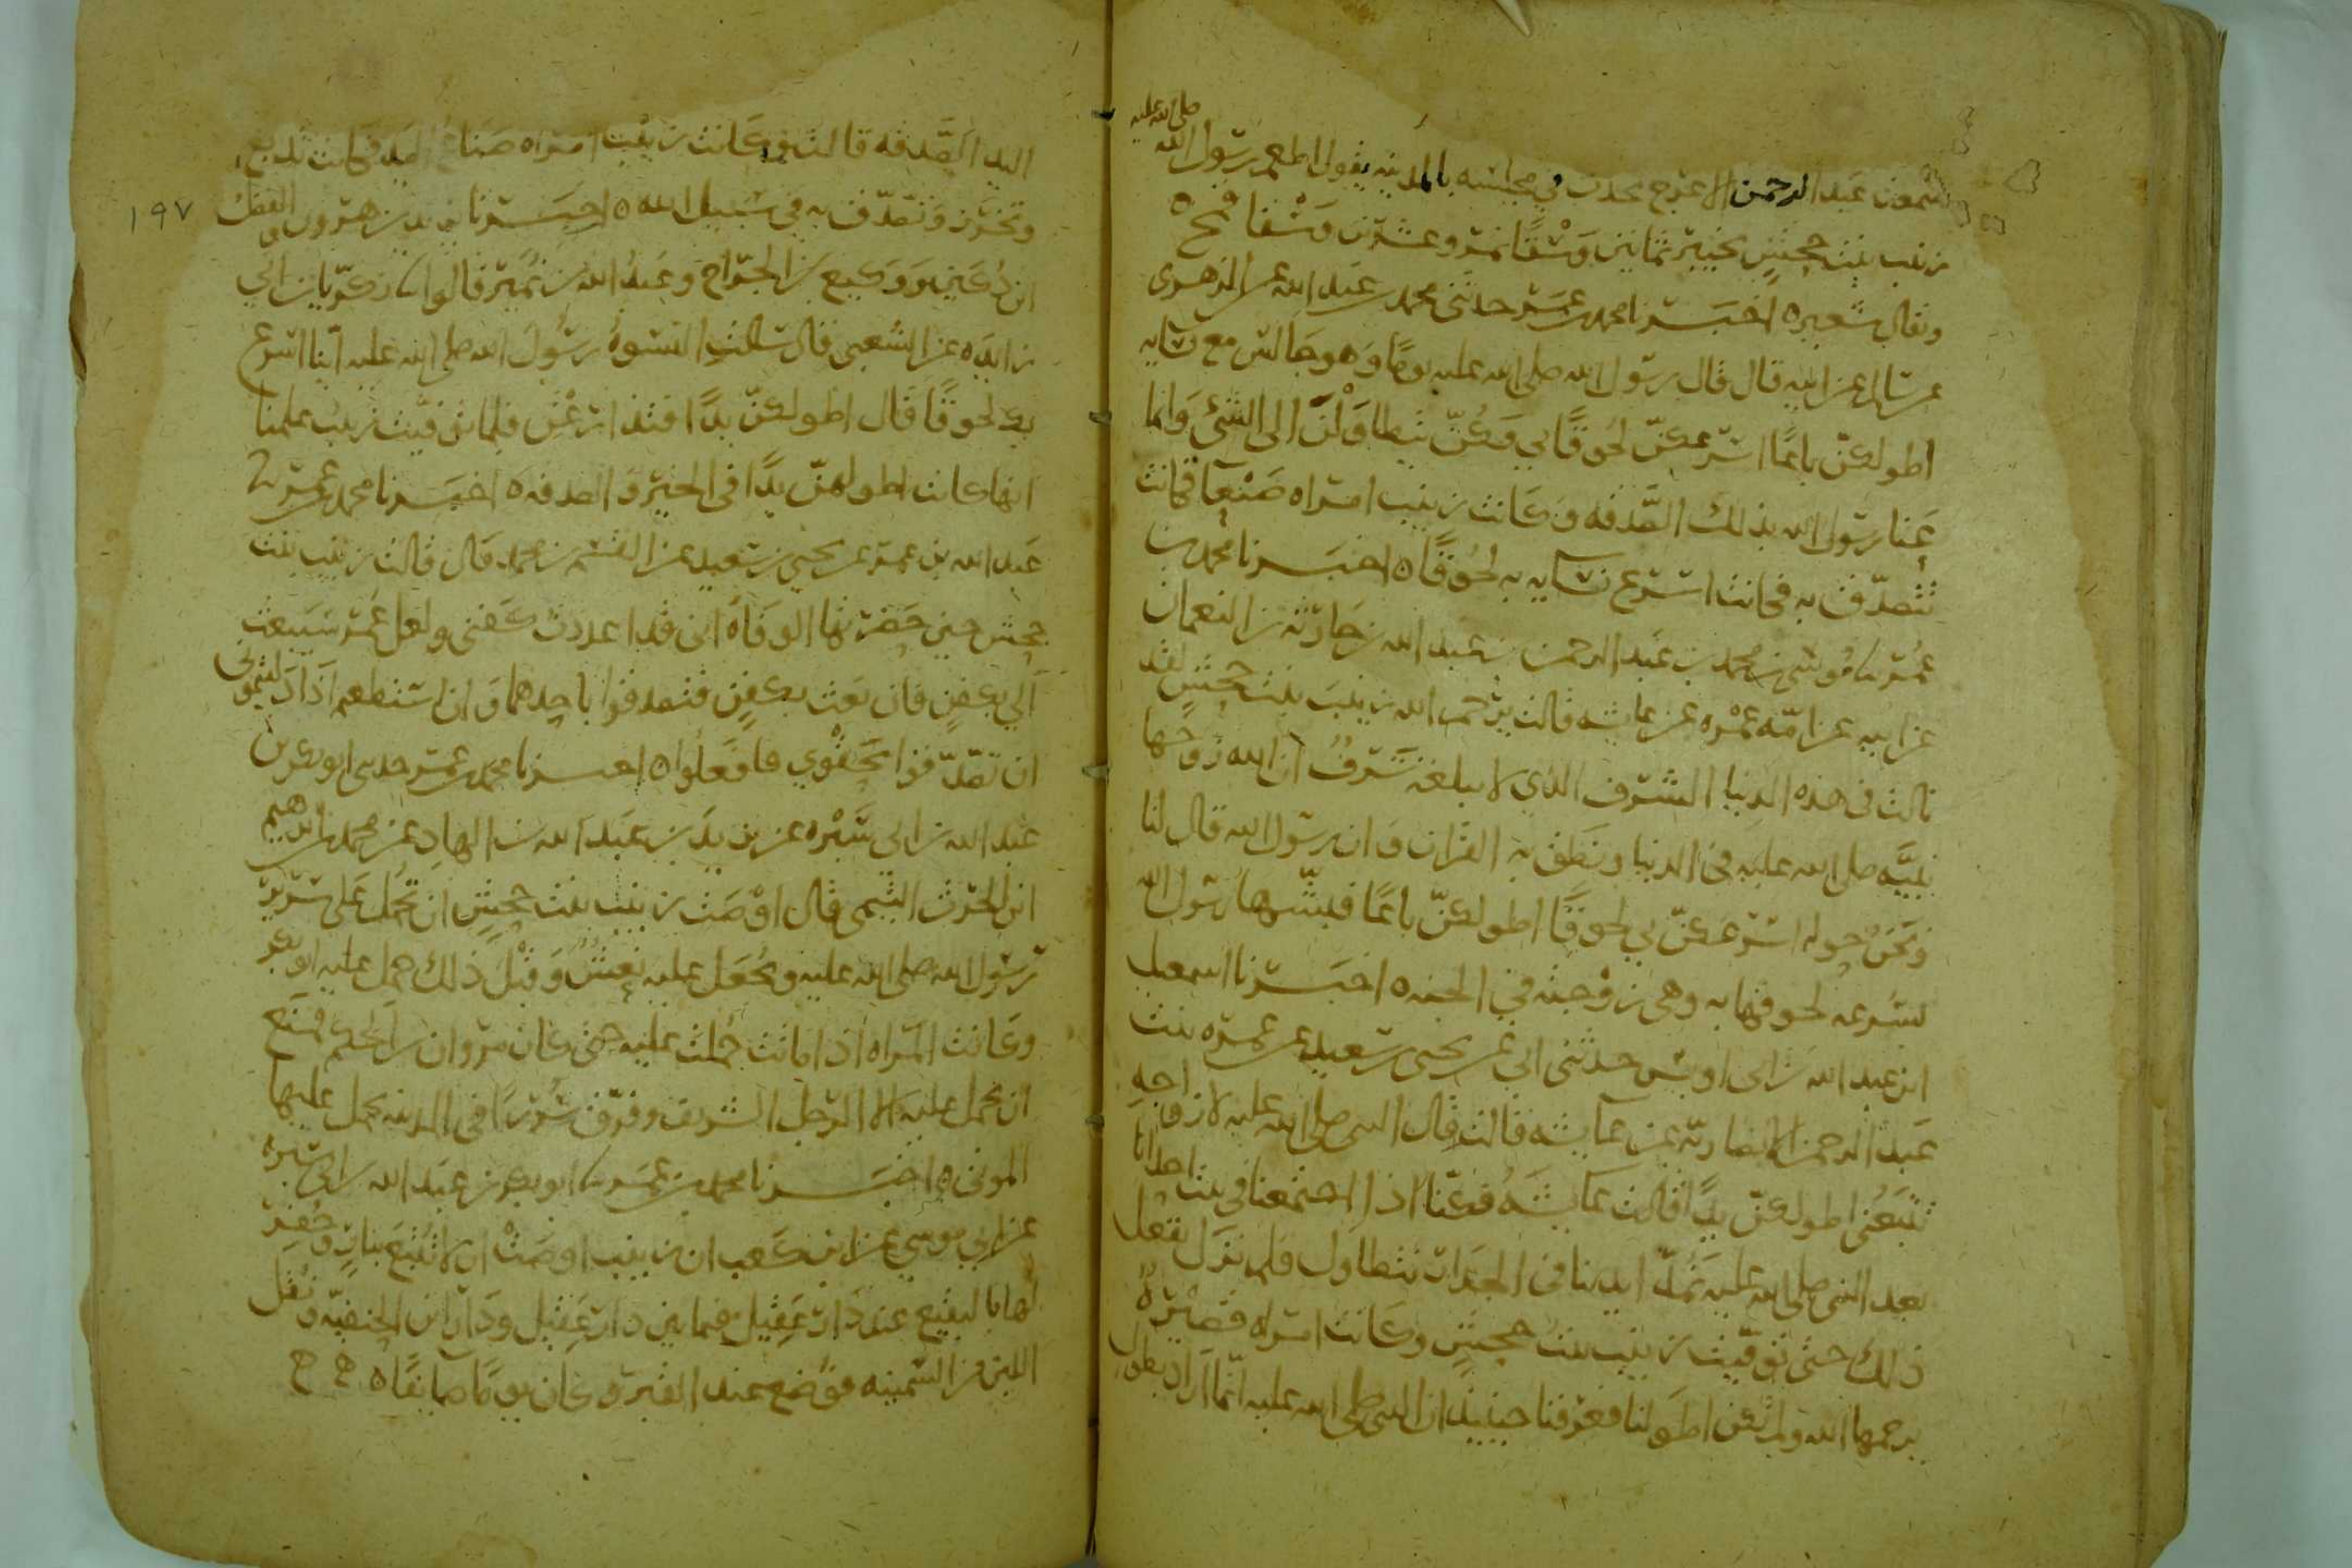 صلى الله عليه
سمعت عبد الرحمن الاعرج يحدث في مجلسه بالمدينه يقول اطعم رسول الله
زينب بنت جحش بخيبر ثمانين وسقا تمر وعشرين وسقا قمح ه
ويقال شعير ه اخبرنا محمد بن عمر حدثني محمد بن عبد الله عن الزهري
عن سالم عن ابيه قال قال رسول الله صلى الله عليه يوما وهو جالس مع نسايه
اطولكن باعا اسرعكن لحوقا بي فكن يتطاولن الى الشئ وانما
عنا رسول الله بذلك الصدقه وكانت زينب امراه صنعا فكانت
تتصدق به فكانت اسرع نسايه به لحوقا ه اخبرنا محمد بن
عمر نا موسى بن محمد بن عبد الرحمن بن عبد الله بن حارثه بن النعمان
عن ابيه عن امه عمره عن عايشه قالت يرحم الله زينب بنت جحش لقد
نالت في هذه الدنيا الشرف الذي لا يبلغه شرف ان الله زوجها
نبيه صلى الله عليه في الدنيا ونطق به القران وان رسول الله قال لنا
ونحن حوله اسرعكن بي لحوقا اطولكن باعا فبشرها رسول الله
بسرعه لحوقها به وهي زوجته في الجنه ه اخبرنا اسمعيل
ابن عبد الله بن ابي اويس حدثني ابي عن يحيى بن سعيد عن عمره بنت
عبد الرحمن الانصاريه عن عايشه قالت قال النبي صلى الله عليه لازواجه
تتبعني اطولكن يدا قالت عايشه فكنا اذا اجتمعنا في بيت احدانا
بعد النبي صلى الله عليه نمد ايدينا في الجدار نتطاول فلم نزل نفعل
ذلك حتى توفيت زينب بنت جحش وكانت امراه قصيره
يرحمها الله ولم تكن اطولنا فعرفنا حينيذ ان النبي صلى الله عليه انما اراد بطول
اليد الصدقه قالت وكانت زينب امراه صناع اليد فكانت تدبغ
وتخرز وتتصدق به في سبيل الله ه اخبرنا يزيد بن هرون والفضل
١٩٧
ابن دكين ووكيع بن الجراح وعبد الله بن نمير قالوا نا زكريا بن ابي
زايده عن الشعبي قال سالت النسوه رسول الله صلى الله عليه اينا اسرع
بك لحوقا قال اطولكن يدا فتذارعن فلما توفيت زينب علمنا
انها كانت اطولهن يدا في الخير والصدقه ه اخبرنا محمد بن عمر نا
عبد الله بن عمر عن يحيى بن سعيد عن القسم بن محمد قال قالت زينب بنت
جحش حين حضرتها الوفاه اني قد اعددت كفني ولعل عمر سيبعث
الي بكفن فان بعث بكفن فتصدقوا باحدهما وان استطعتم اذا دليتموني
ان تصدقوا بحقوي فافعلوا ه اخبرنا محمد بن عمر حدثني ابو بكر بن
عبد الله بن ابي سبره عن يزيد بن عبد الله بن الهاد عن محمد بن ابرهيم
ابن الحرث التيمي قال اوصت زينب بنت جحش ان تحمل على سرير
رسول الله صلى الله عليه ويجعل عليه نعش وقبل ذلك حمل عليه ابو بكر
وكانت المراه اذا ماتت حملت عليه حتى كان مروان بن الحكم فمنع
ان يحمل عليه الا الرجل الشريف وفرق سررا في المدينه يحمل عليها
الموتى ه اخبرنا محمد بن عمر نا ابو بكر بن عبد الله بن ابي سبره
عن ابي موسى عن ابن كعب ان زينب اوصت ان لا تتبع بنار وحفر
لها بالبقيع عند دار عقيل فيما بين دار عقيل ودار ابن الحنفيه ونقل
اللبن من السمينه فوضع عند القبر وكان يوما صايفا ه